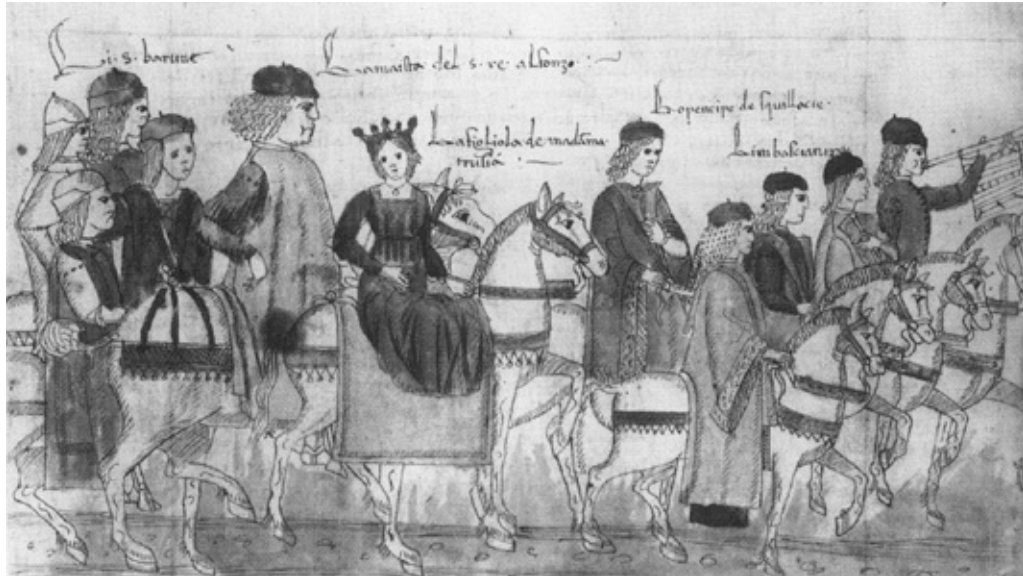 Li · s · barune
La maista del s · re · alfonzo : ~
La fioliola de madama
trusia : ~
Lo prencipe de squillacie ·
Limbasciaturi